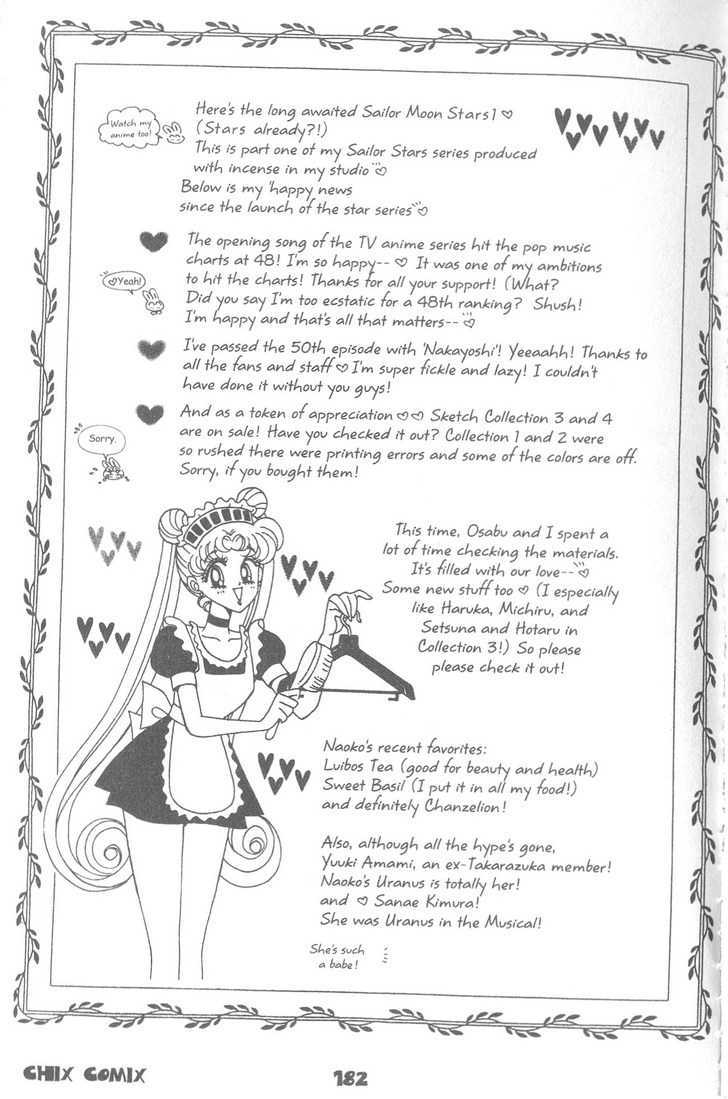 Watch my
anime too!
Here's the long awaited Sailor Moon Stars1
(Stars already?!)
This is part one of my Sailor Stars series produced
with incense in my studio
Below is my 'happy news
since the launch of the star series
The opening song of the TV anime series hit the pop music
charts at 48! I'm so happy-- It was one of my ambitions
to hit the charts! Thanks for all your support! (What?
Did you say I'm too ecstatic for a 48th ranking? Shush!
I'm happy and that's all that matters--
Yeah!
I've passed the 50th episode with 'Nakayoshi'! Yeeaahh! Thanks to
all the fans and staff I'm super fickle and lazy! I couldn't
have done it without you guys!
And as a token of appreciation Sketch Collection 3 and 4
are on sale! Have you checked it out? Collection 1 and 2 were
so rushed there were printing errors and some of the colors are off.
Sorry, if you bought them!
Sorry.
This time, Osabu and I spent a
lot of time checking the materials.
It's filled with our love--
Some new stuff too (I especially
like Haruka, Michiru, and
Setsuna and Hotaru in
Collection 3!) So please
please check it out!
Naoko's recent favorites:
Luibos Tea (good for beauty and health)
Sweet Basil (I put it in all my food!)
and definitely Chanzelion!
Also, although all the hype's gone,
Yuuki Amami, an ex-Takarazuka member!
Naoko's Uranus is totally her!
and Sanae Kimura!
She was Uranus in the Musical!
She's such
a babe!
CHIX COMIX
182